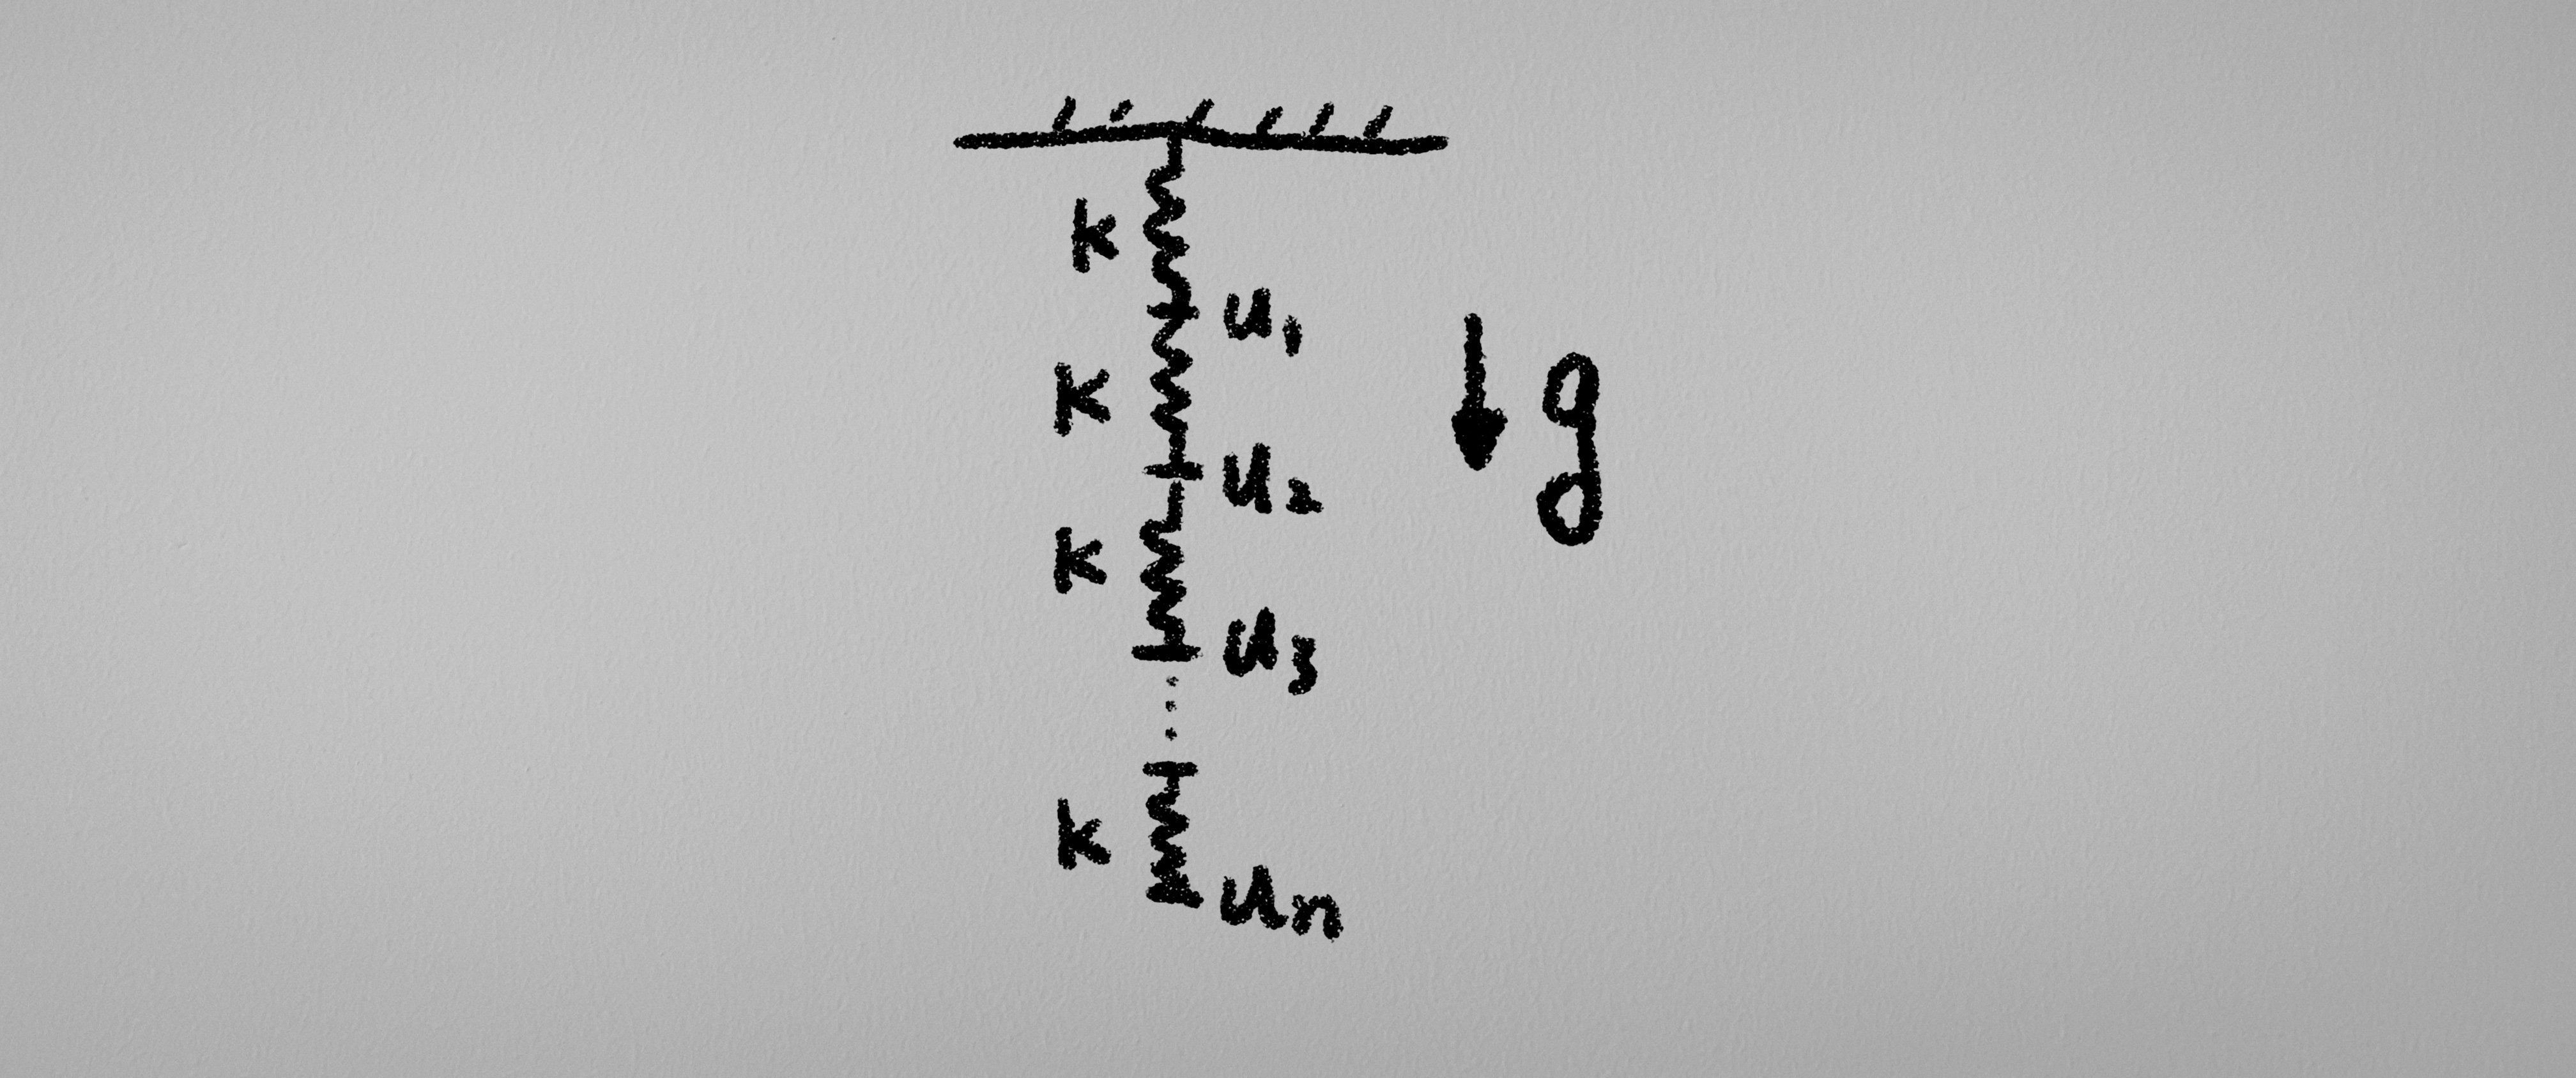 k
u₁
k
g
u₂
k
u₃
k
uₙ